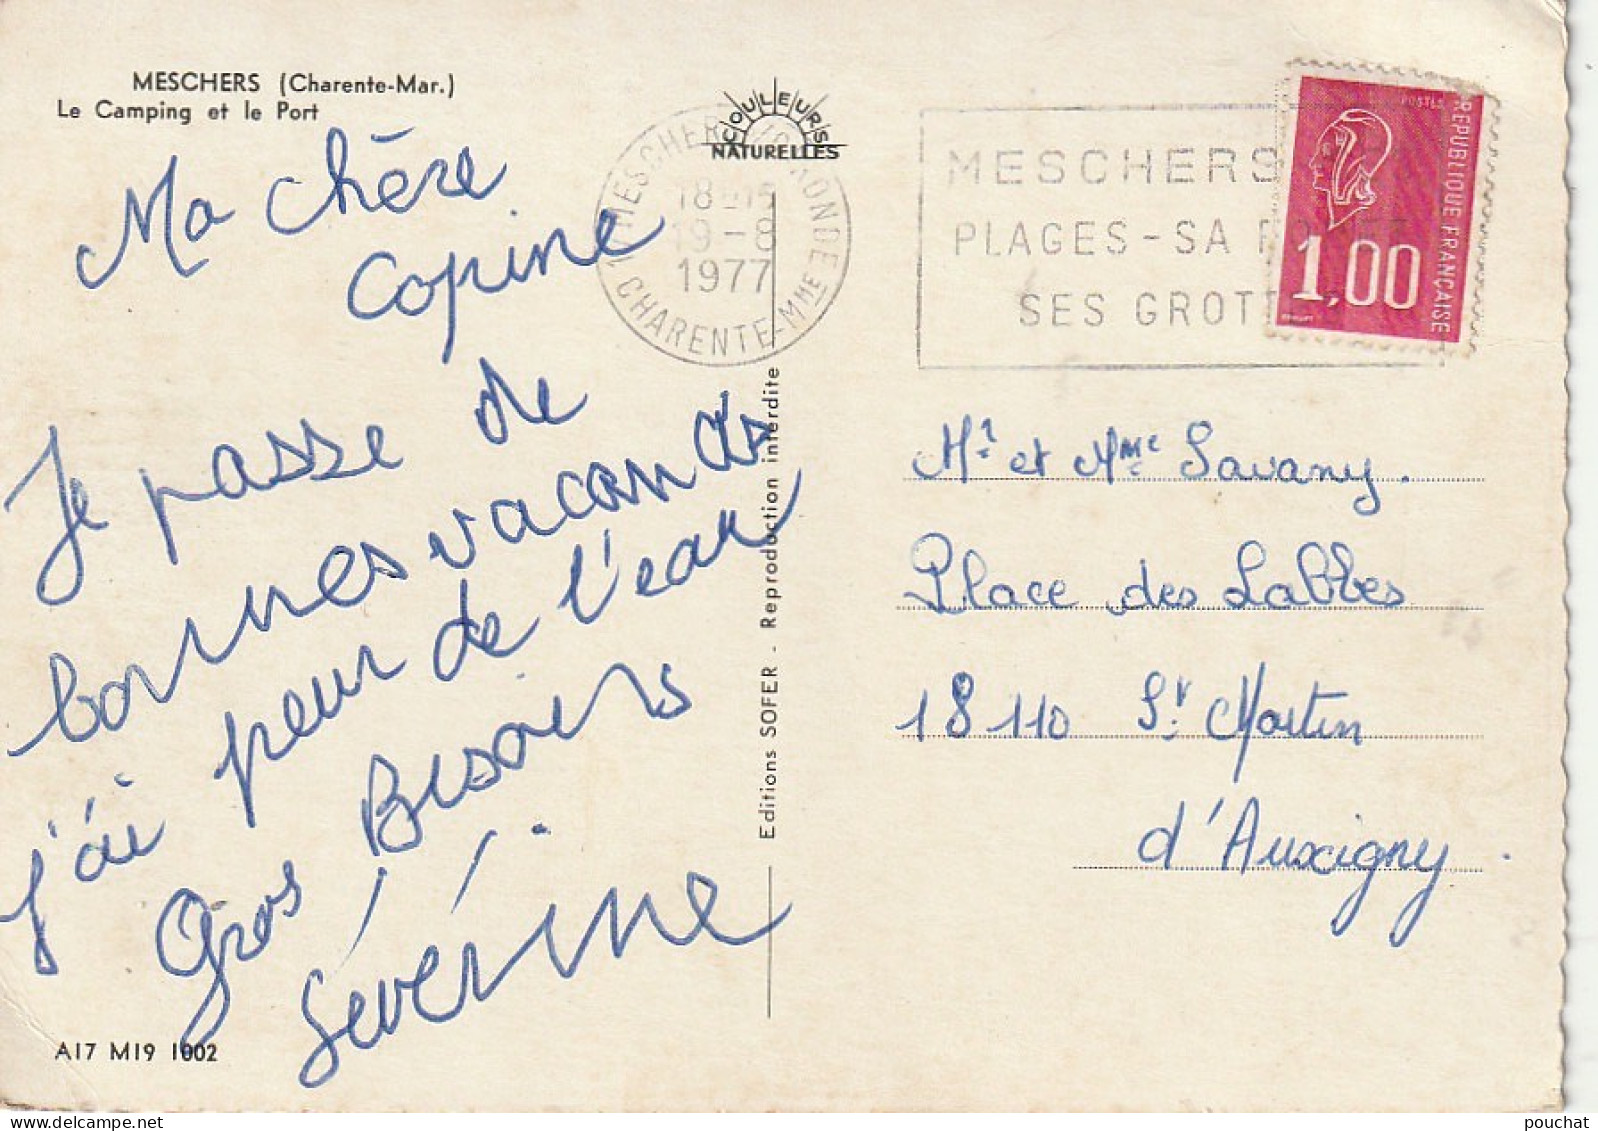 MESCHERS (Charente-Mar.)
Le Camping et le Port
Ma chère
copine
Je passe de
bonnes vacances
j'ai peur de l'eau
Gros Bisous
Séverine
A17 M19 1002
COULEURS
NATURELLES
17 MESCHERS GIRONDE
18-15
19-8
1977
CHARENTE-MME
Editions SOFER - Reproduction interdite
MESCHERS
PLAGES-SA
SES GROT
POSTES
REPUBLIQUE FRANÇAISE
1,00
Mr et Mme Savany.
Place des Labbes
18110 St Martin
d'Auxigny
pouchat